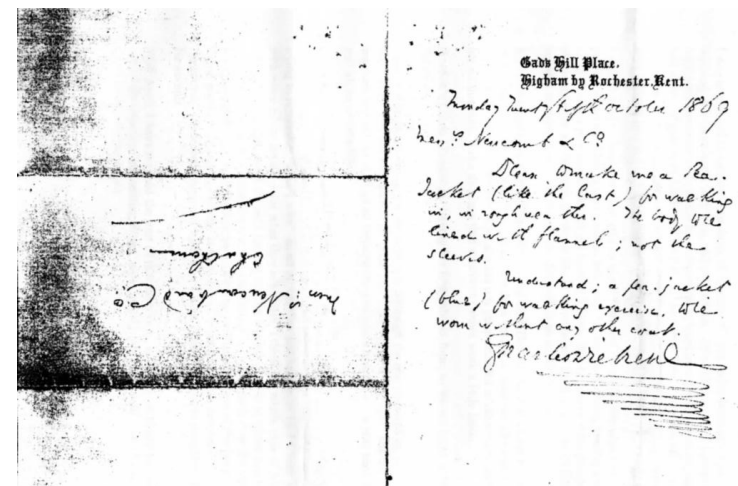 Gad's Hill Place.
Higham by Rochester, Kent.
Monday Twenty fifth October 1869
Messrs Newcomb & Co
Please to make me a Pea-
Jacket (like the last) for walking
in, in rough weather. The body to be
lined with flannel; not the
sleeves.
Understand; a pea-jacket
(blue) for walking exercise. To be
worn without any other coat.
Charles Dickens
Messrs Newcomb and Co
Chatham